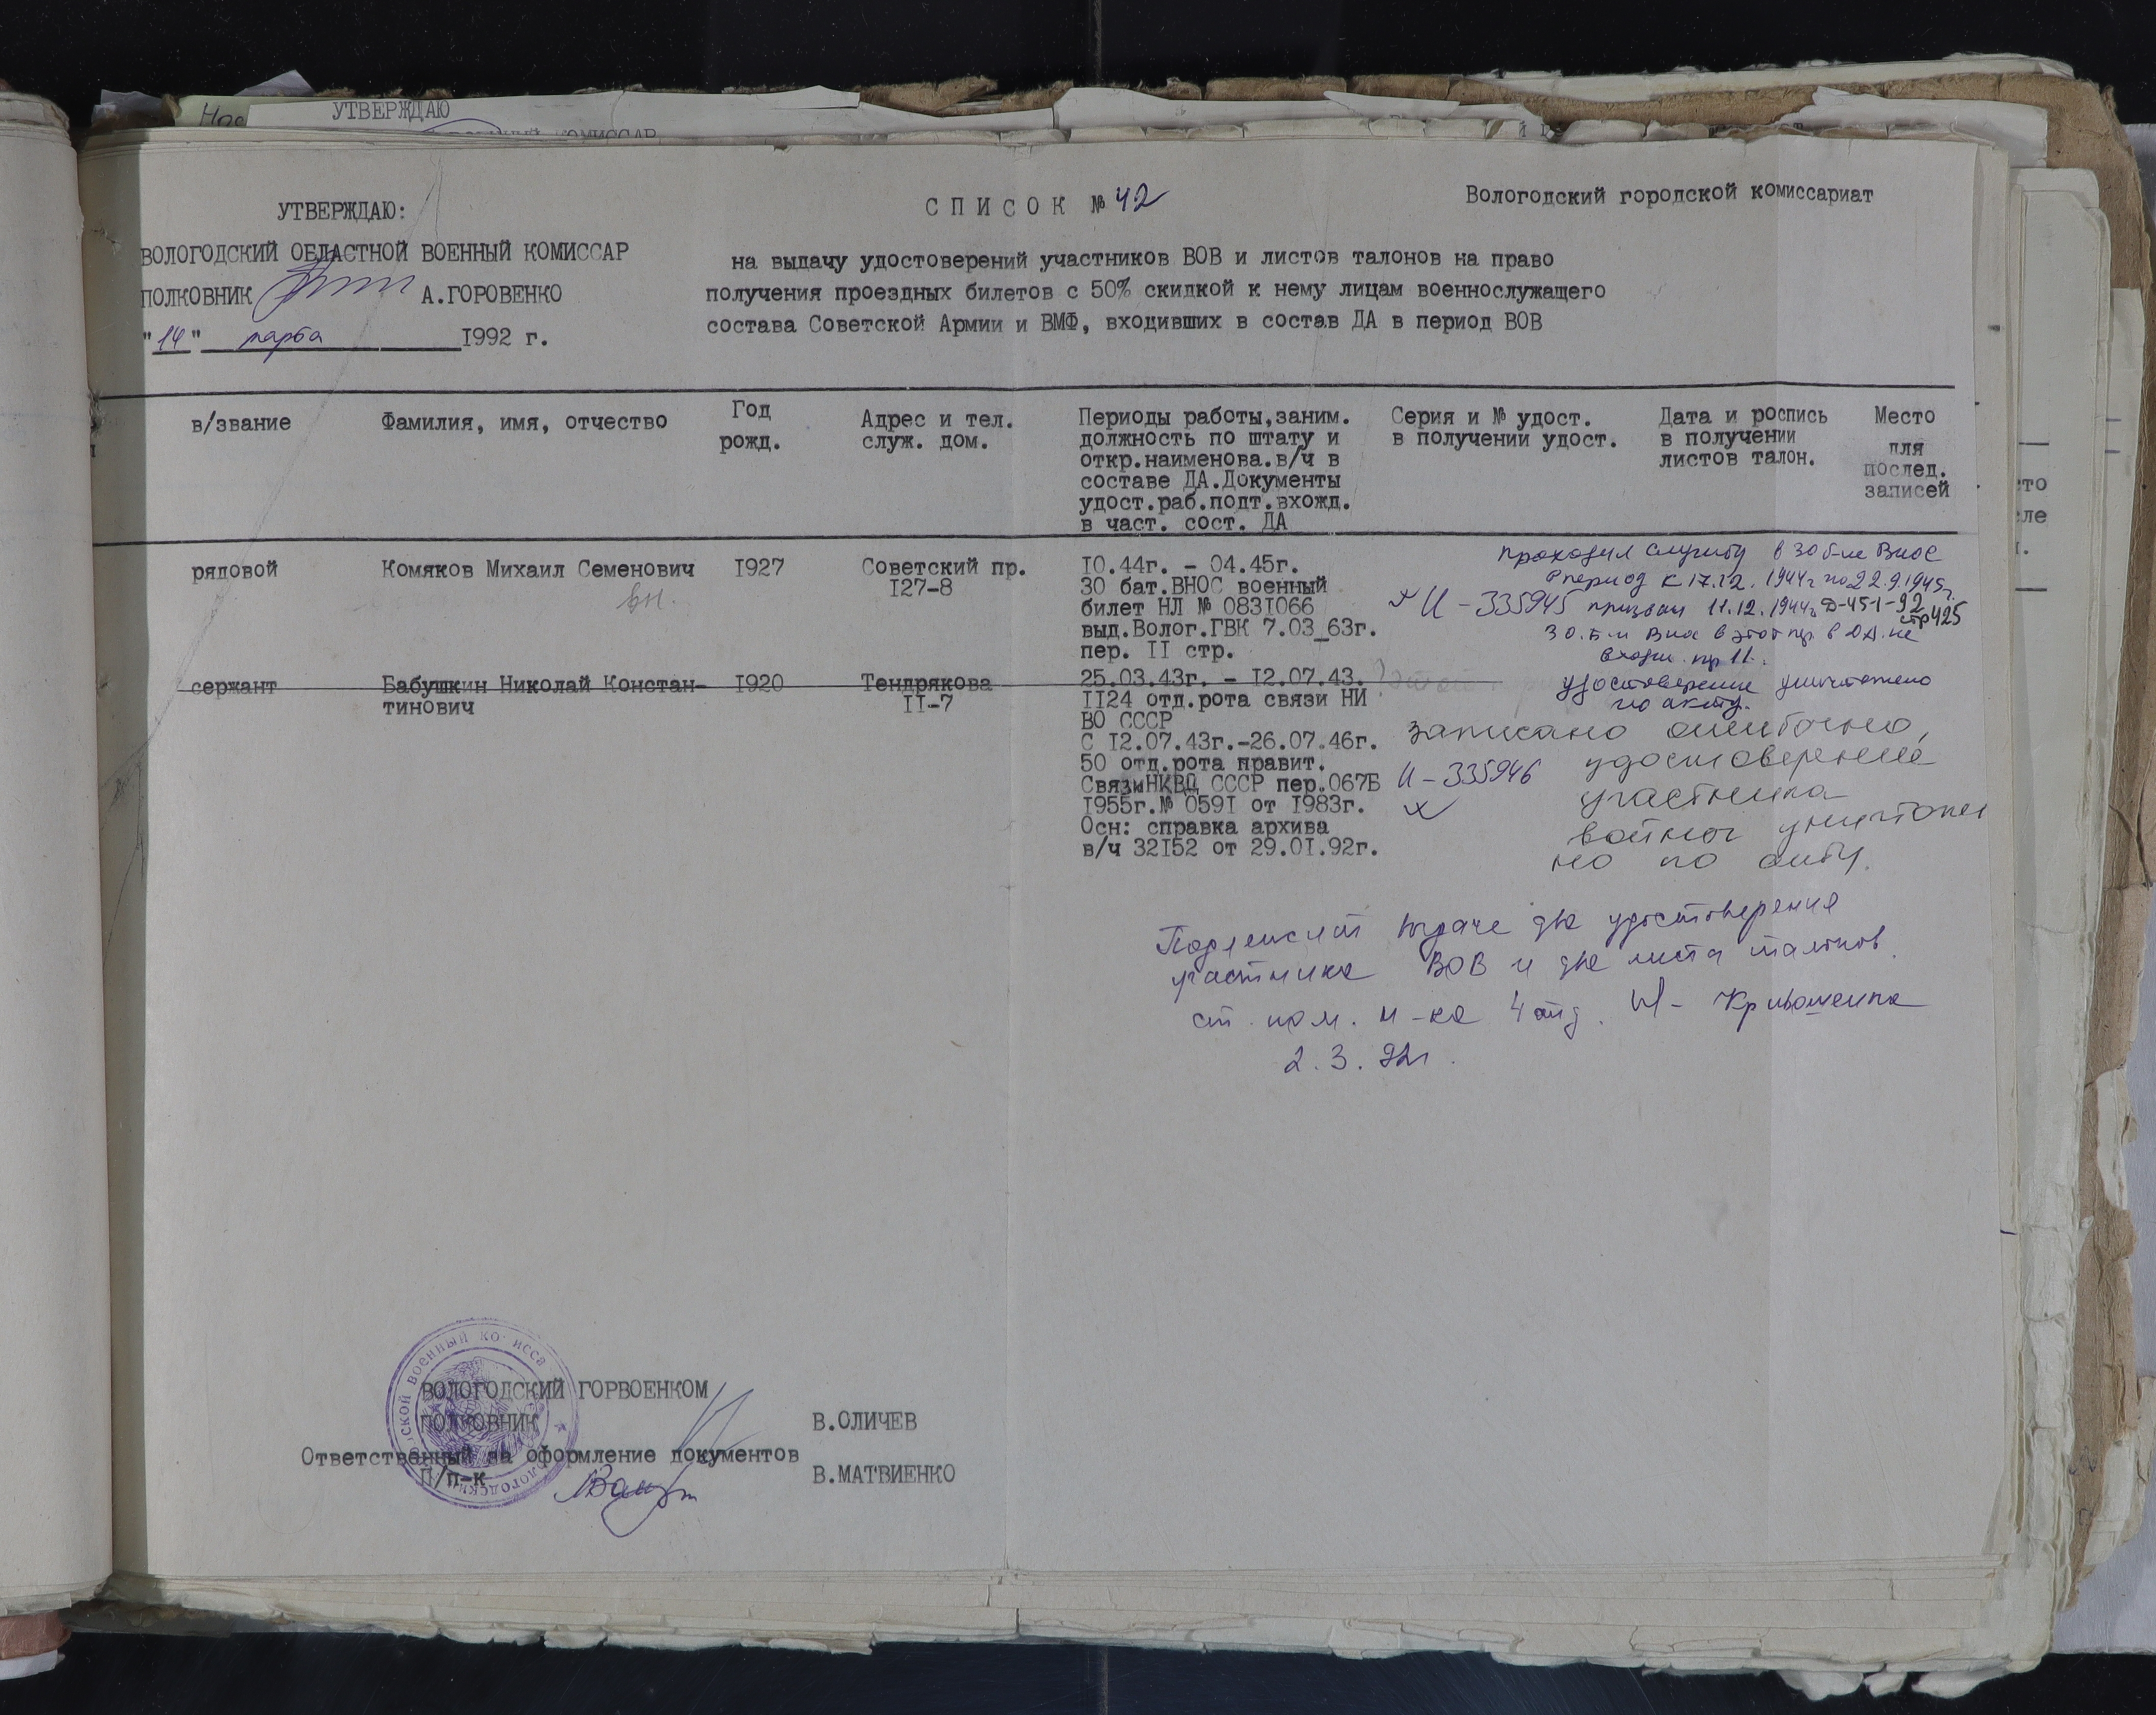 УТВЕРЖДАЮ
УТВЕРЖДАЮ:
ВОЛОГОДСКИЙ ОБЛАСТНОЙ ВОЕННЫЙ КОМИССАР
ПОЛКОВНИК А.ГОРОВЕНКО
"14" марта 1992 г.
СПИСОК № 42
на выдачу удостоверений участников ВОВ и листов талонов на право
получения проездных билетов с 50% скидкой к нему лицам военнослужащего
состава Советской Армии и ВМФ, входивших в состав ДА в период ВОВ
Вологодский городской комиссариат
в/звание
Фамилия, имя, отчество
Год
рожд.
Адрес и тел.
служ. дом.
Периоды работы,заним.
должность по штату и
откр.наименова.в/ч в
составе ДА.Документы
удост.раб.подт.вхожд.
в част. сост. ДА
Серия и № удост.
в получении удост.
Дата и роспись
в получении
листов талон.
Место
для
послед.
записей
рядовой
Комяков Михаил Семенович
вн.
1927
Советский пр.
127-8
10.44г. - 04.45г.
30 бат.ВНОС военный
билет НЛ № 0831066
выд.Волог.ГВК 7.03_63г.
пер. II стр.
проходил службу в 30 б-не Внос
в период с 17.12.1944г по 22.9.1945г.
И - 335945 призван 11.12.1944г Д-451-92
стр 425
30.Б-н Внос в этот пер. в ДА не
входил. пр 11.
удостоверение уничтожено
по акту.
сержант
Бабушкин Николай Констан-
тинович
1920
Тендрякова
II-7
25.03.43г. - 12.07.43.
II24 отд.рота связи НИ
ВО СССР
С 12.07.43г.-26.07.46г.
50 отд.рота правит.
Связи НКВД СССР пер.067Б
1955г.№ 0591 от 1983г.
Осн: справка архива
в/ч 32152 от 29.01.92г.
записано ошибочно,
И - 335946 удостоверение
участника
войны уничтоже
но по акту.
Подлежит выдаче два удостоверения
участника ВОВ и два листа талонов
ст. пом. н-ка 4 отд. Кривошеина
2.3.92г.
ВОЛОГОДСКИЙ ГОРВОЕНКОМ
ПОЛКОВНИК В.ОЛИЧЕВ
Ответственный за оформление документов
П/п-к В.МАТВИЕНКО